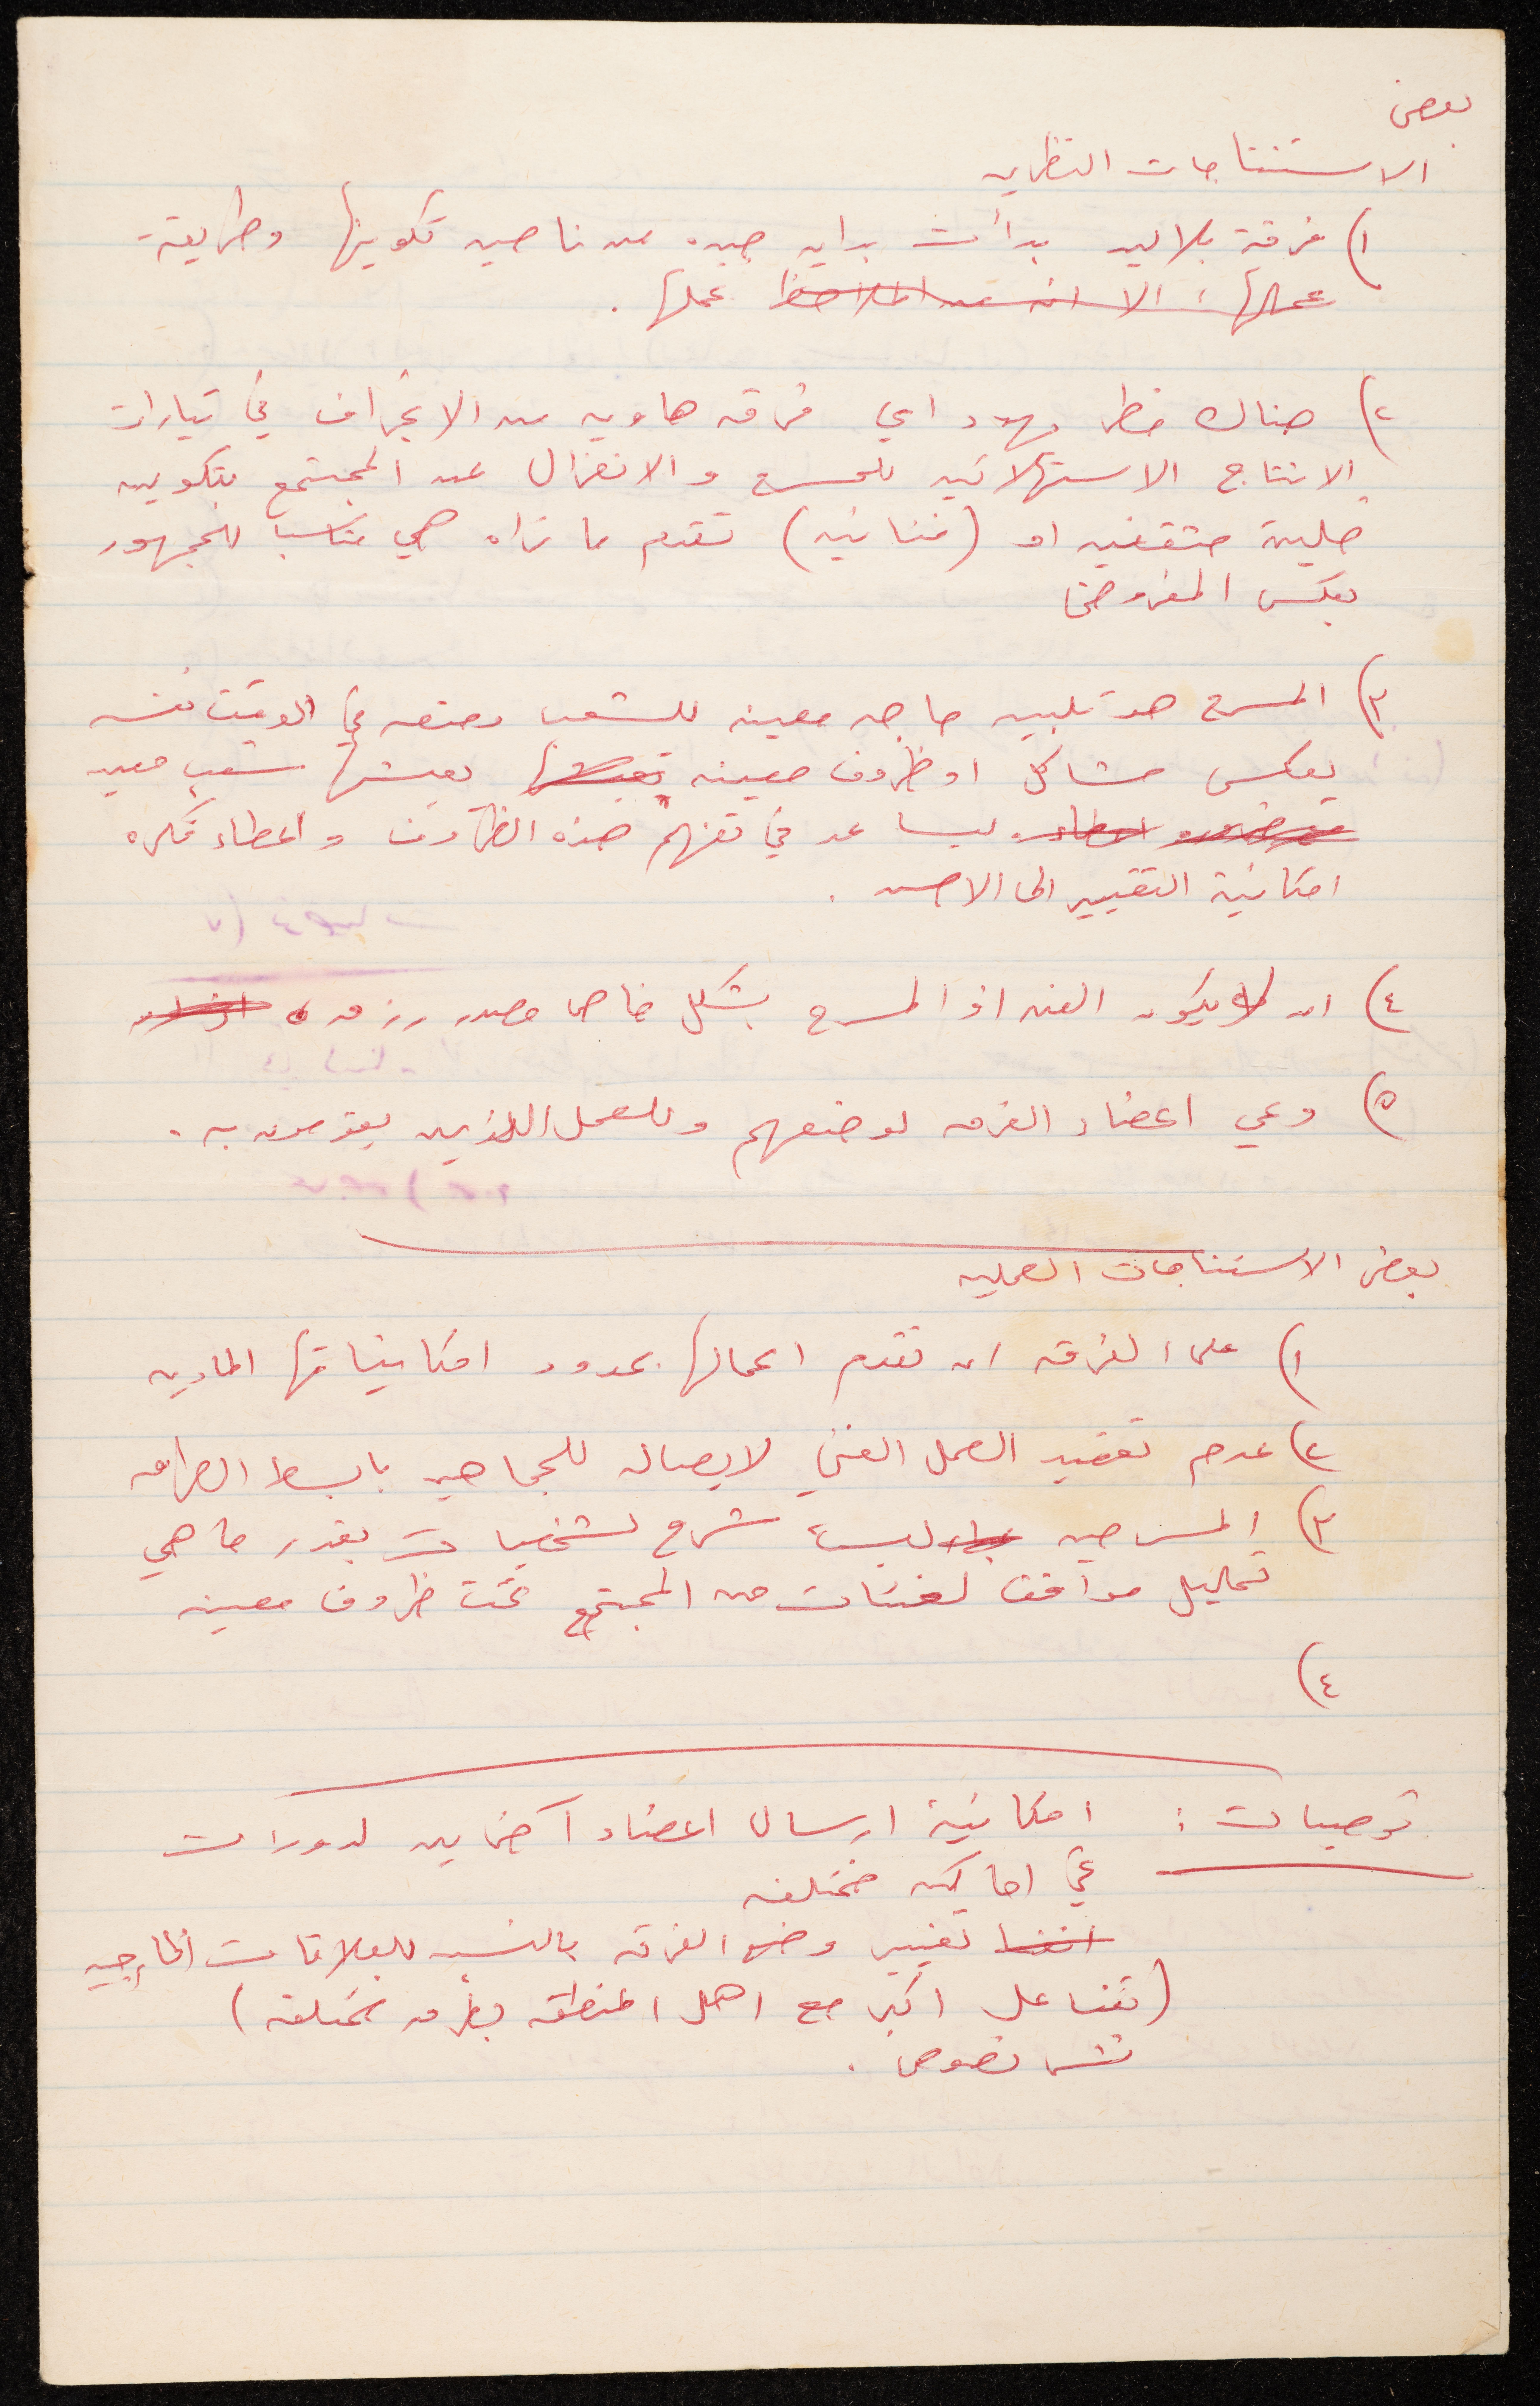 بعض
الاستنتاجات النظريه
١) فرقة بلالين بدأت بدايه جيده من ناحيه تكوينها وطريقة
عملها، الا انه من الملاحظ عملها.
٢) هناك خطر يهدد اي فرقه هاويه من الانجراف في تيارات
الانتاج الاستهلاكيه للمسرح والانعزال عن المجتمع بتكوين
خلية مثقفين او (فنانين) تقدم ما تراه هي مناسبا للجمهور
بعكس المفروض
٣) المسرح هو تلبيه حاجه معينه للشعب وضعه في الوقت نفسه
يعكس مشاكل او ظروف معينه يعيشها شعب معين
ليساعد في تفهم هذه الظروف واعطاء فكره
امكانية التغيير الى الاحسن.
٤) ان لا يكون الفن او المسرح بشكل خاص مصدر رزق
٥) وعي اعضاء الفرقه لوضعهم وللعمل اللذين يقومون به.
بعض الاستنتاجات العمليه
١) على الفرقه ان تقدم اعمالها بحدود امكانيتاتها الماديه
٢) عدم تعقيد العمل الفني لايصاله للجماهير بابسط الطرق
٣) المسرحيه ليست شرح لشخصيات بقدر ما هي
تحليل مواقف لفئات من المجتمع تحت ظروف معينه
٤)
توصيات: امكانية ارسال اعضاء آخرين لدورات
في اماكن مختلفه
تغيير وضع الفرقه بالنسبه للعلاقات الخارجيه
(تفاعل اكبر مع اهل المنطقه بطرق مختلفه)
نشر نصوص.